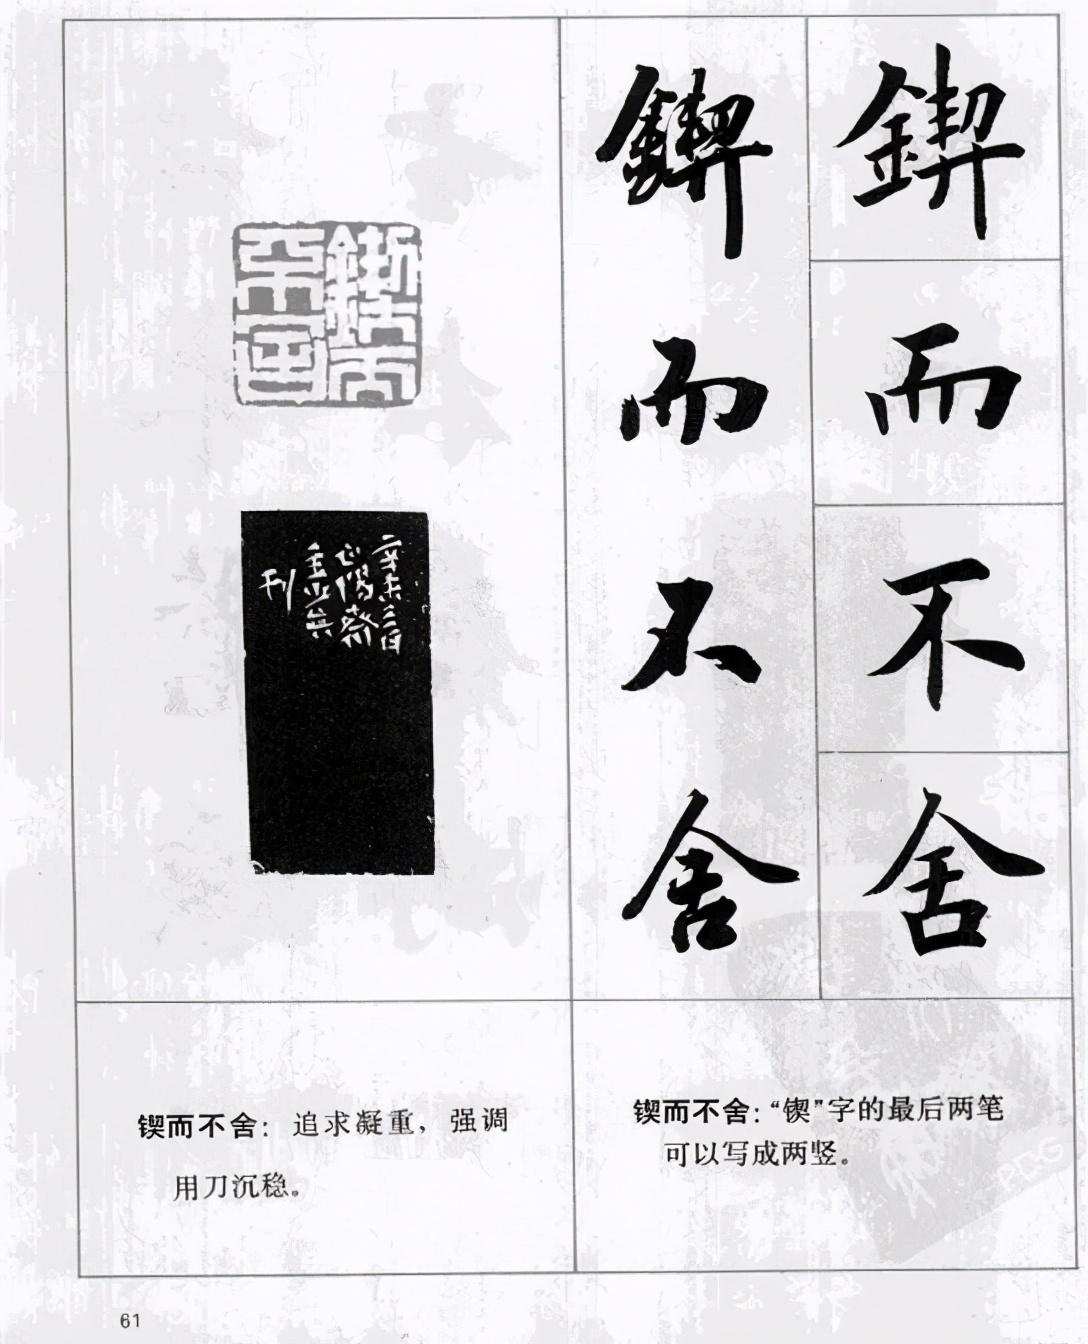 鍥而不舍
鍥而不舍
鍥而
不舍
辛未三月
刊
锲而不舍：追求凝重，强调
用刀沉稳。
锲而不舍：“锲”字的最后两笔
可以写成两竖。
61